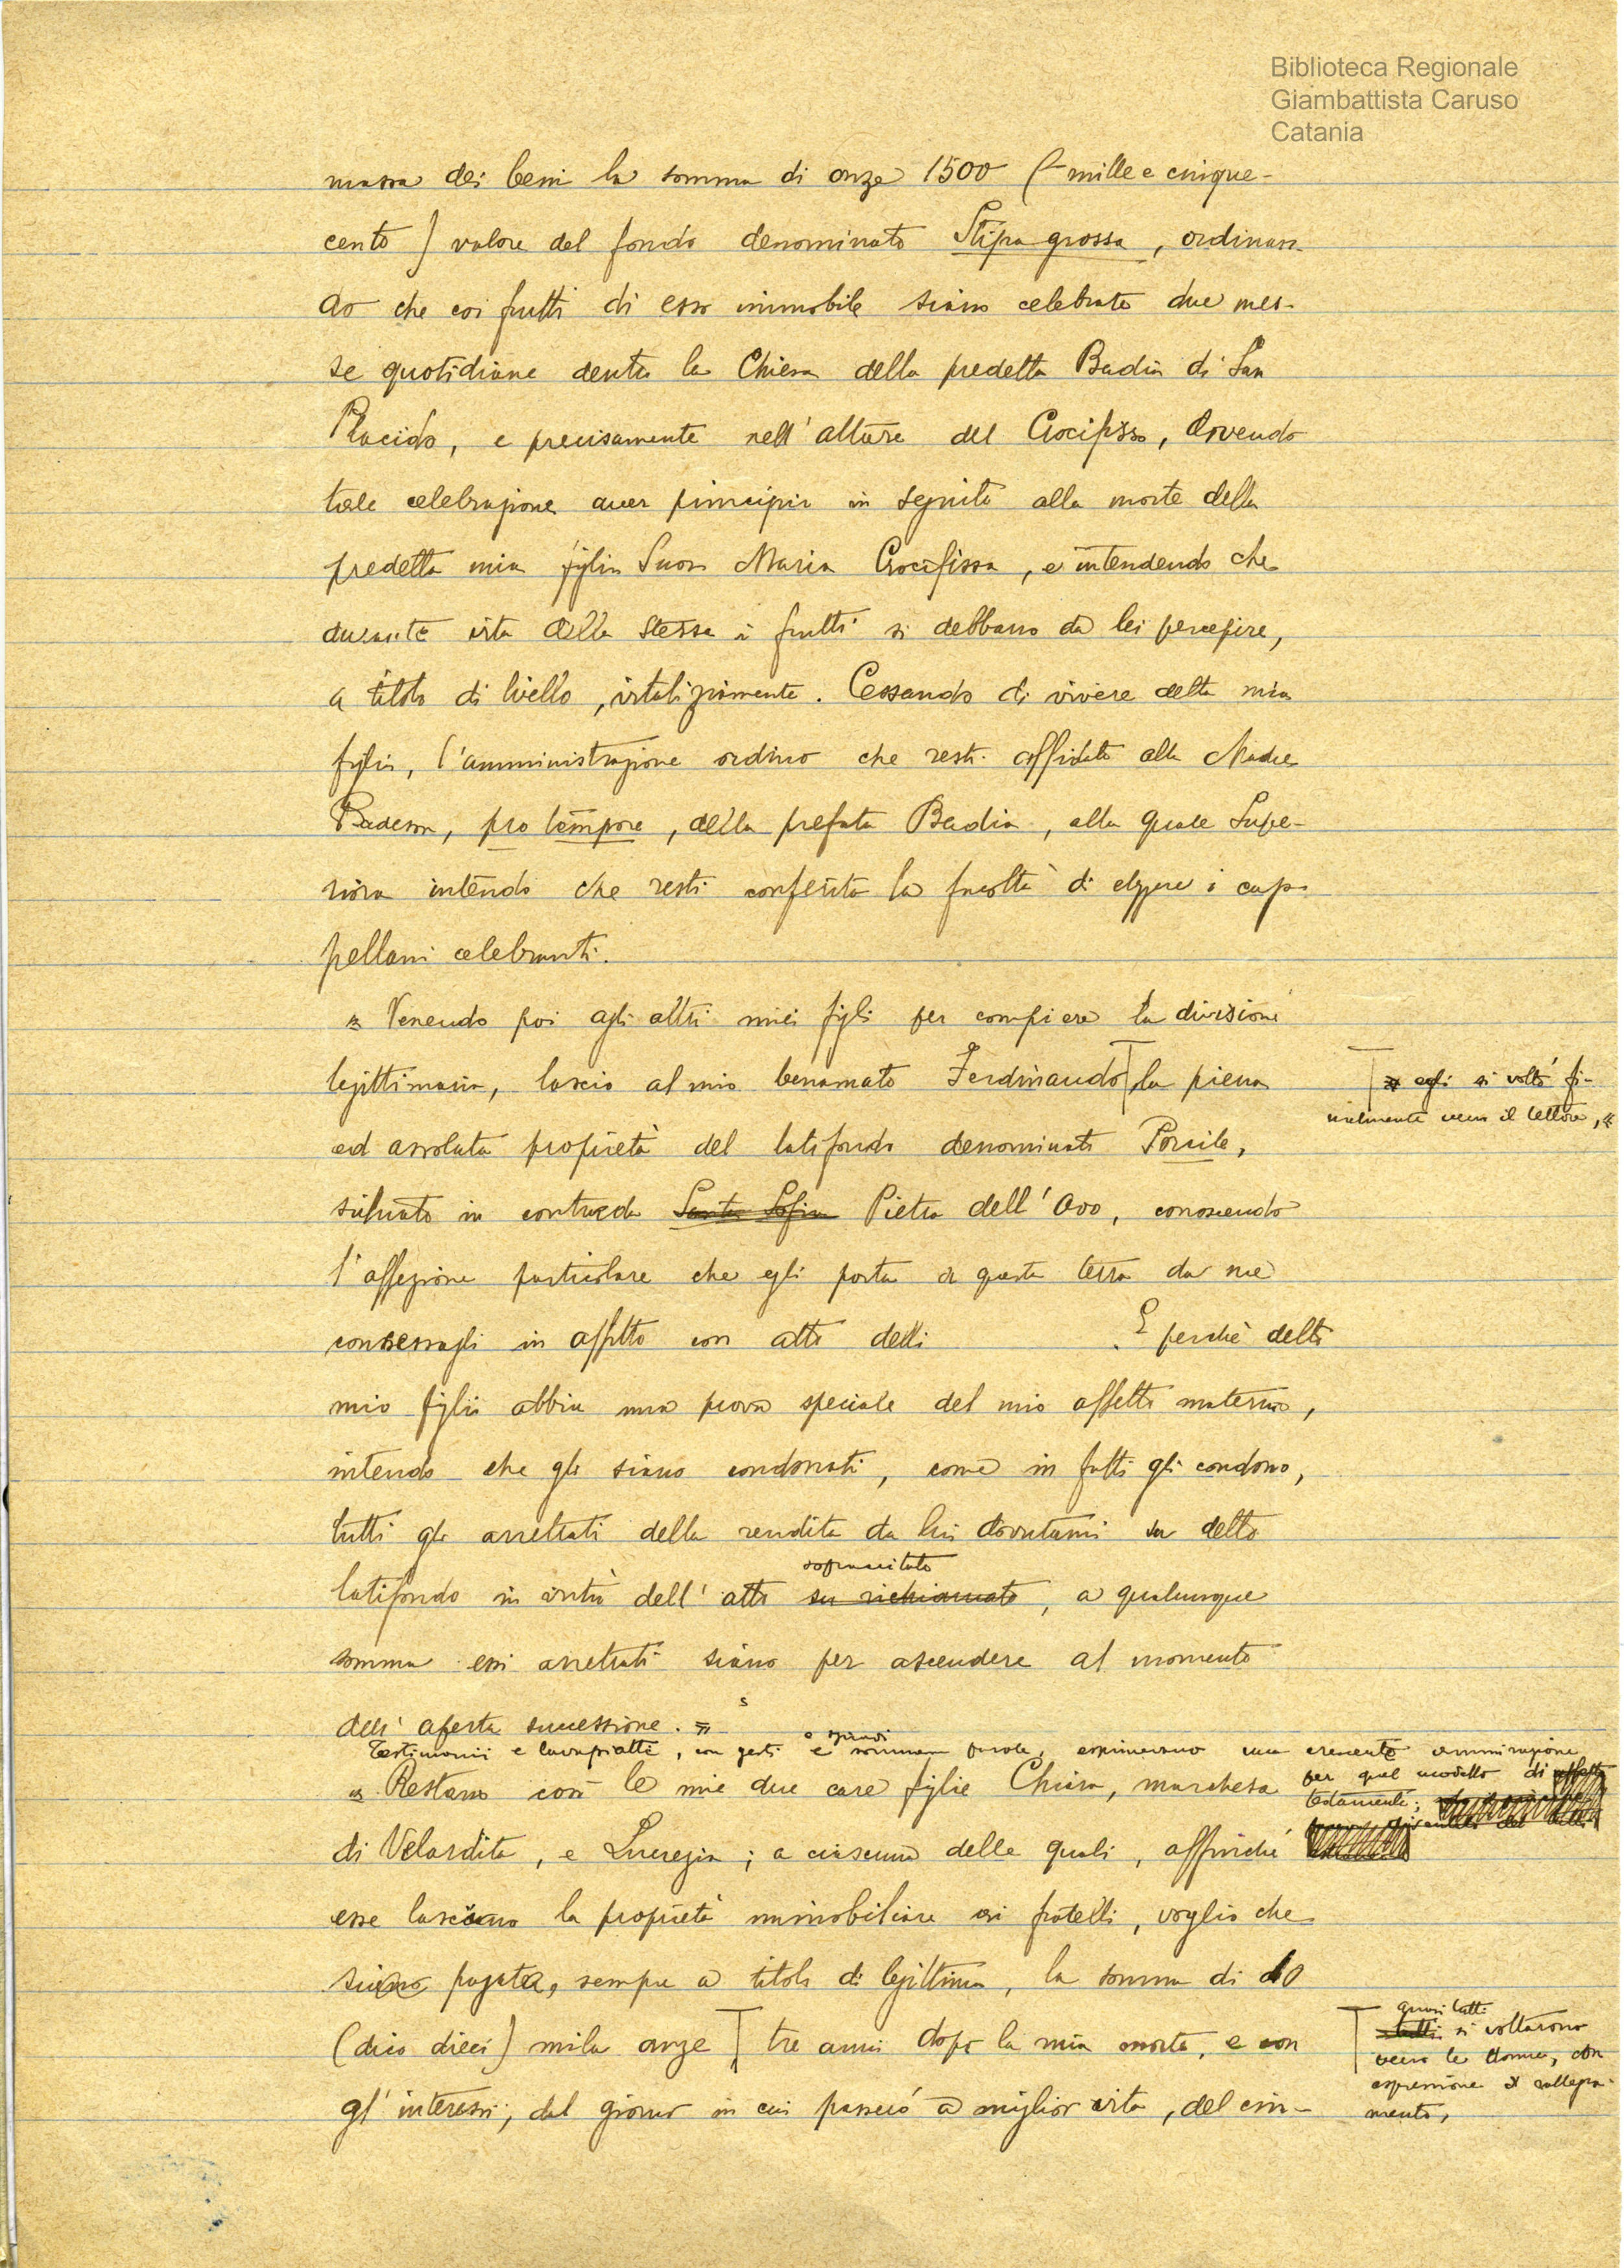 Biblioteca Regionale
Giambattista Caruso
Catania
massa dei beni la somma di onze 1500 (mille e cinque-
cento) valore del fondo denominato Stipa grossa, ordinan-
do che coi frutti di esso immobile siano celebrate due mes-
se quotidiane dentro la Chiesa della predetta Badia di San
Placido, e precisamente nell'altare del Crocifisso, dovendo
tale celebrazione aver principio in seguito alla morte della
predetta mia figlia Suor Maria Crocifissa, e intendendo che
durante vita della stessa i frutti si debbano da lei percepire,
a titolo di livello, vitaliziamente. Cessando di vivere detta mia
figlia, l'amministrazione ordino che resti affidata alla Madre
Badessa, pro tempore, della prefata Badia, alla quale Supe-
riora intendo che resti conferita la facoltà di eleggere i cap-
pellani celebranti.
« Venendo poi agli altri miei figli per compiere la divisione
legittimaria, lascio al mio benamato Ferdinando la piena
egli si voltò fi-
nalmente verso il lettore, «
ed assoluta proprietà del latifondo denominato Porcile,
situato in contrada Santa Sofia Pietra dell'Ovo, conoscendo
l'affezione particolare che egli porta a questa terra da me
concessagli in affitto con atto delli
. E perchè detto
mio figlio abbia una prova speciale del mio affetto materno,
intendo che gli siano condonati, come in fatti gli condono,
tutti gli arretrati della rendita da lui dovutami su detto
sopracitato
latifondo in virtù dell'atto su richiamato, a qualunque
somma essi arretrati siano per ascendere al momento
dell'aperta successione. »
Testimonii e lavapiatti, con gesti e sommesse parole, esprimevano una crescente ammirazione
per quel modello di
testamento;
« Restano così le mie due care figlie Chiara, marchesa
di Velardita, e Lucrezia; a ciascuna delle quali, affinchè
esse lasciano la proprietà immobiliare ai fratelli, voglio che
siano pagate, sempre a titolo di legittima, la somma di 10
(dico dieci) mila onze tre anni dopo la mia morte, e con
quasi tutti
tutti si voltarono
verso le donne, con
espressione di rallegra-
mento,
gl'interessi, dal giorno in cui passerò a miglior vita, del cin-